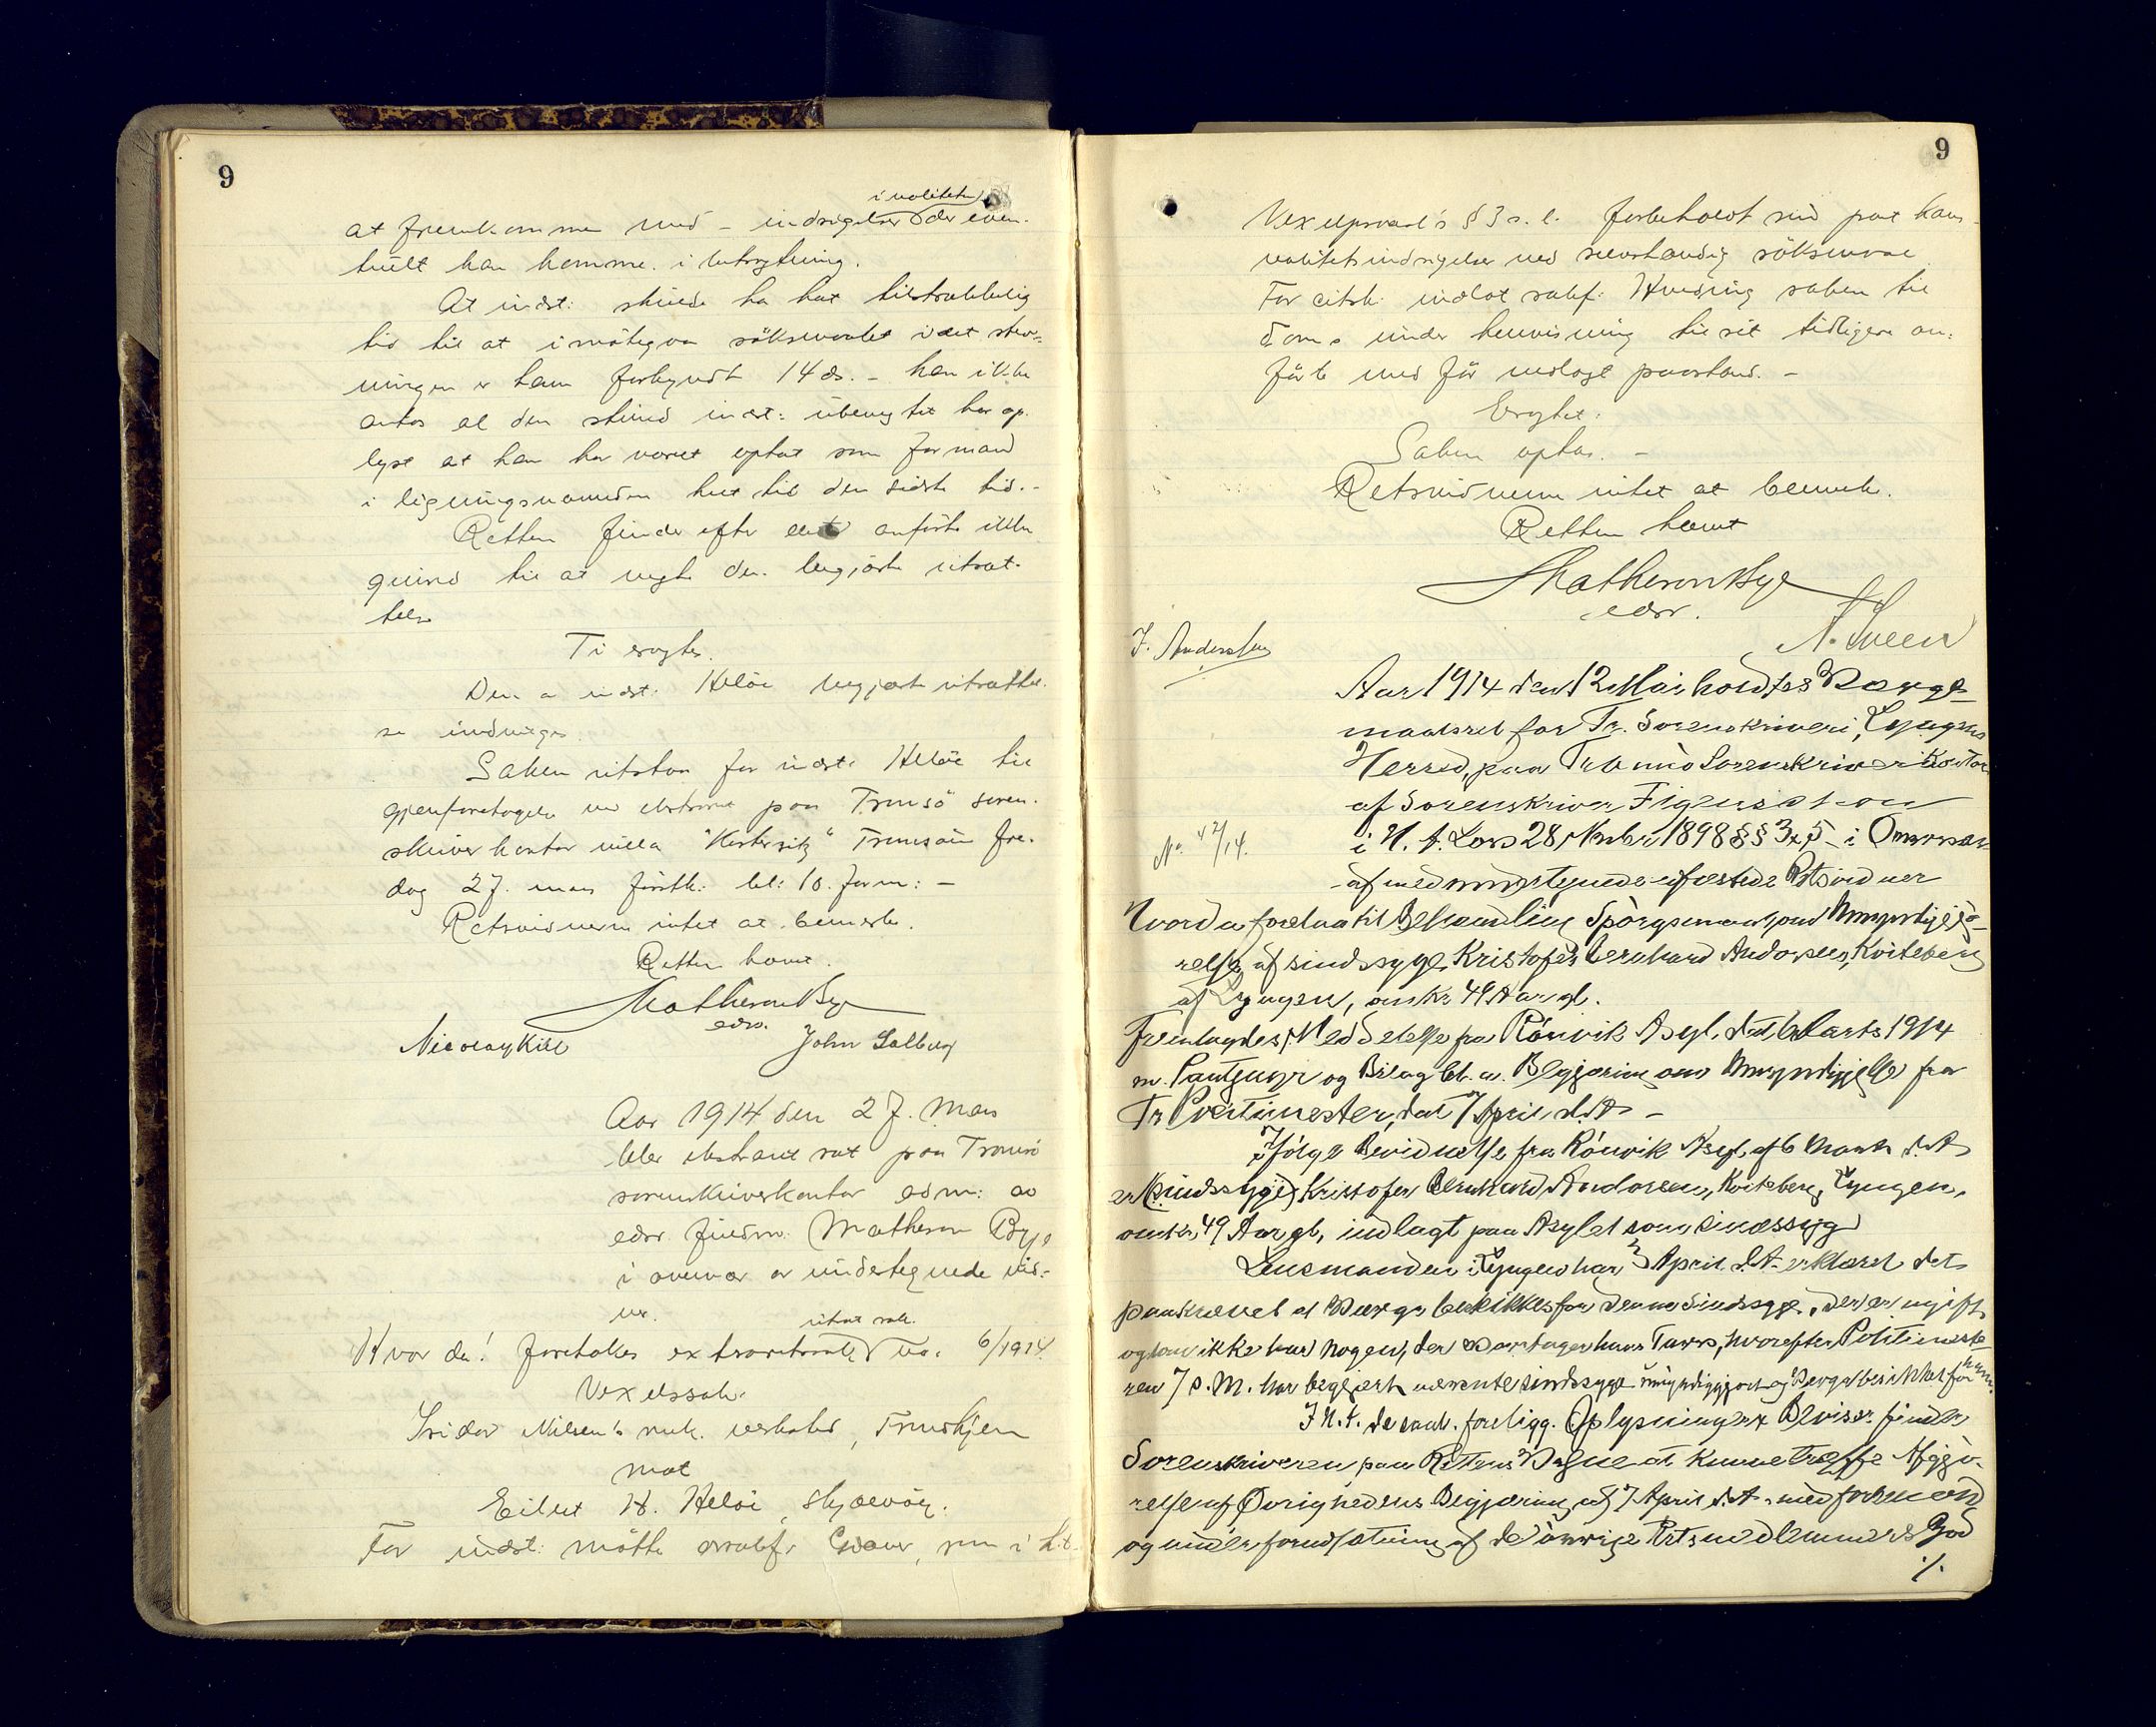 9
i realiteten
at fremkomme med – indsigelser der even-
tuelt kan komme i betragtning.
At indst: skulde ha hat tilstrækkelig
tid til at imøtegaa søksmaalet idet stev-
ningen er ham forkyndt 14 ds. – kan ikke
antas al den stund indst: ubenegtet har op-
lyst at han har været optat som formand
i ligningsnævnden hele til den sidste tid. –
Retten finder efter det anførte ikke
grund til at negte den begjærte utsæt-
telse
Ti eragtes.
Den a indst: Heløe begjærte utsættel-
se indvilges.
Saken utstaar for indst: Heløe til
gjenforetagelse ved ekstraret paa Tromsø soren-
skriverkontor villa "Kastersitz" Tromsøen fre-
dag 27. mars førstk: kl: 10. form: –
Retsvidnerne intet at bemerke.
Retten hævet.
Matheson Bye
edsv.
Nicolay Kiil John Solberg
Aar 1914 den 27. Mars
blev ekstraret sat paa Tromsø
sorenskriverkontor adm: av
edsv. fuldm. Matheson Bye
i overvær av undertegnede vid-
ner.
utsat sak.
Hvor da! foretokes extraretssak no. 6/1914.
Vexelssak.
Isidor Nilsen's mek. verksted, Trondhjem
mot
Eilert H. Heløe, Skjærvøy.
For indst: møtte orsakf. , som i h.t.
9
Vexelprosesl's § 3 s. l. forbeholdt sin part hans
realitetsindsigelser ved selvstændig søksmaal
For citst: indlot sakf: Hveding saken til
doms under henvisning til sit tidligere an-
førte med før nedlagt paastand. –
Eragtet:
Saken optas. –
Retsvidnerne intet at bemerke.
Retten hævet
Matheson Bye
edsv.
N. Sveen
J. Anderssen
Aar 1914 den 12 Mai holdtes Værge-
maalsret for Tr. Sorenskriveri, Lyngens
Herred, paa Tromsø Sorenskriverikontor
af Sorenskriver Figenschou
No. 42/14.
i H. t. Lov 28 Novbr 1898 §§ 3 x 5 – i Overvær
af medundertegnede ufæstede Retsvidner
Hvorda foretoges til Behandling Spørgsmaal om Umyndiggjø-
relse af sindssyge Kristofer Bernhard Andersen, Kviteberg
af Lyngen, omkr. 49 Aar gl.
Fremlagdes, Meddelelse fra Rønvik Asyl, dat. 6 Marts 1914
m. Paategngr og Bilag bl. a. Begjæring om Umyndiggjørelse fra
Tr Politimester, dat 7 April d. A –
Ifølge Bevidnelse fra Rønvik Asyl af 6 Marts d. A
er (sindssyge) Kristofer Bernhard Andersen, Kviteberg, Lyngen,
omkr. 49 Aar gl, indlagt paa Asylet som sindssyg
Lensmanden i Lyngen har 3 April d. A. erklæret det
paakrævet at Værge beskikkes for denne Sindssyge, der er ugift
og som ikke har nogen, der varetager hans Tarv, hvorefter Politimeste-
ren 7 s. M. har begjært nævnte sindssyge umyndiggjort og Værge beskikket for ham.
I H. t. de saal. foreligg. Oplysninger x Beviser finder
Sorenskriveren paa Rettens Vegne at kunne treffe Afgjø-
relse af Øvrighedens Begjæring af 7 April d. A. med forbehold
og under forudsætning af de øvrige Retsmedlemmers God
./.